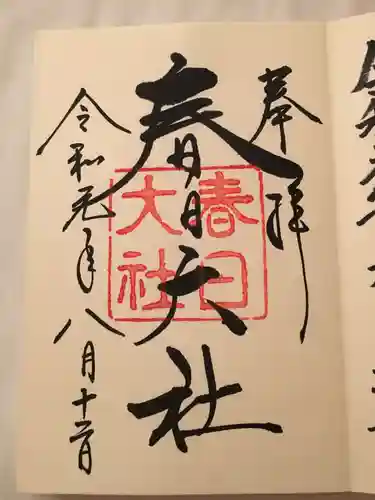 奉拝
春日大社
春日
大社
令和元年八月十二日